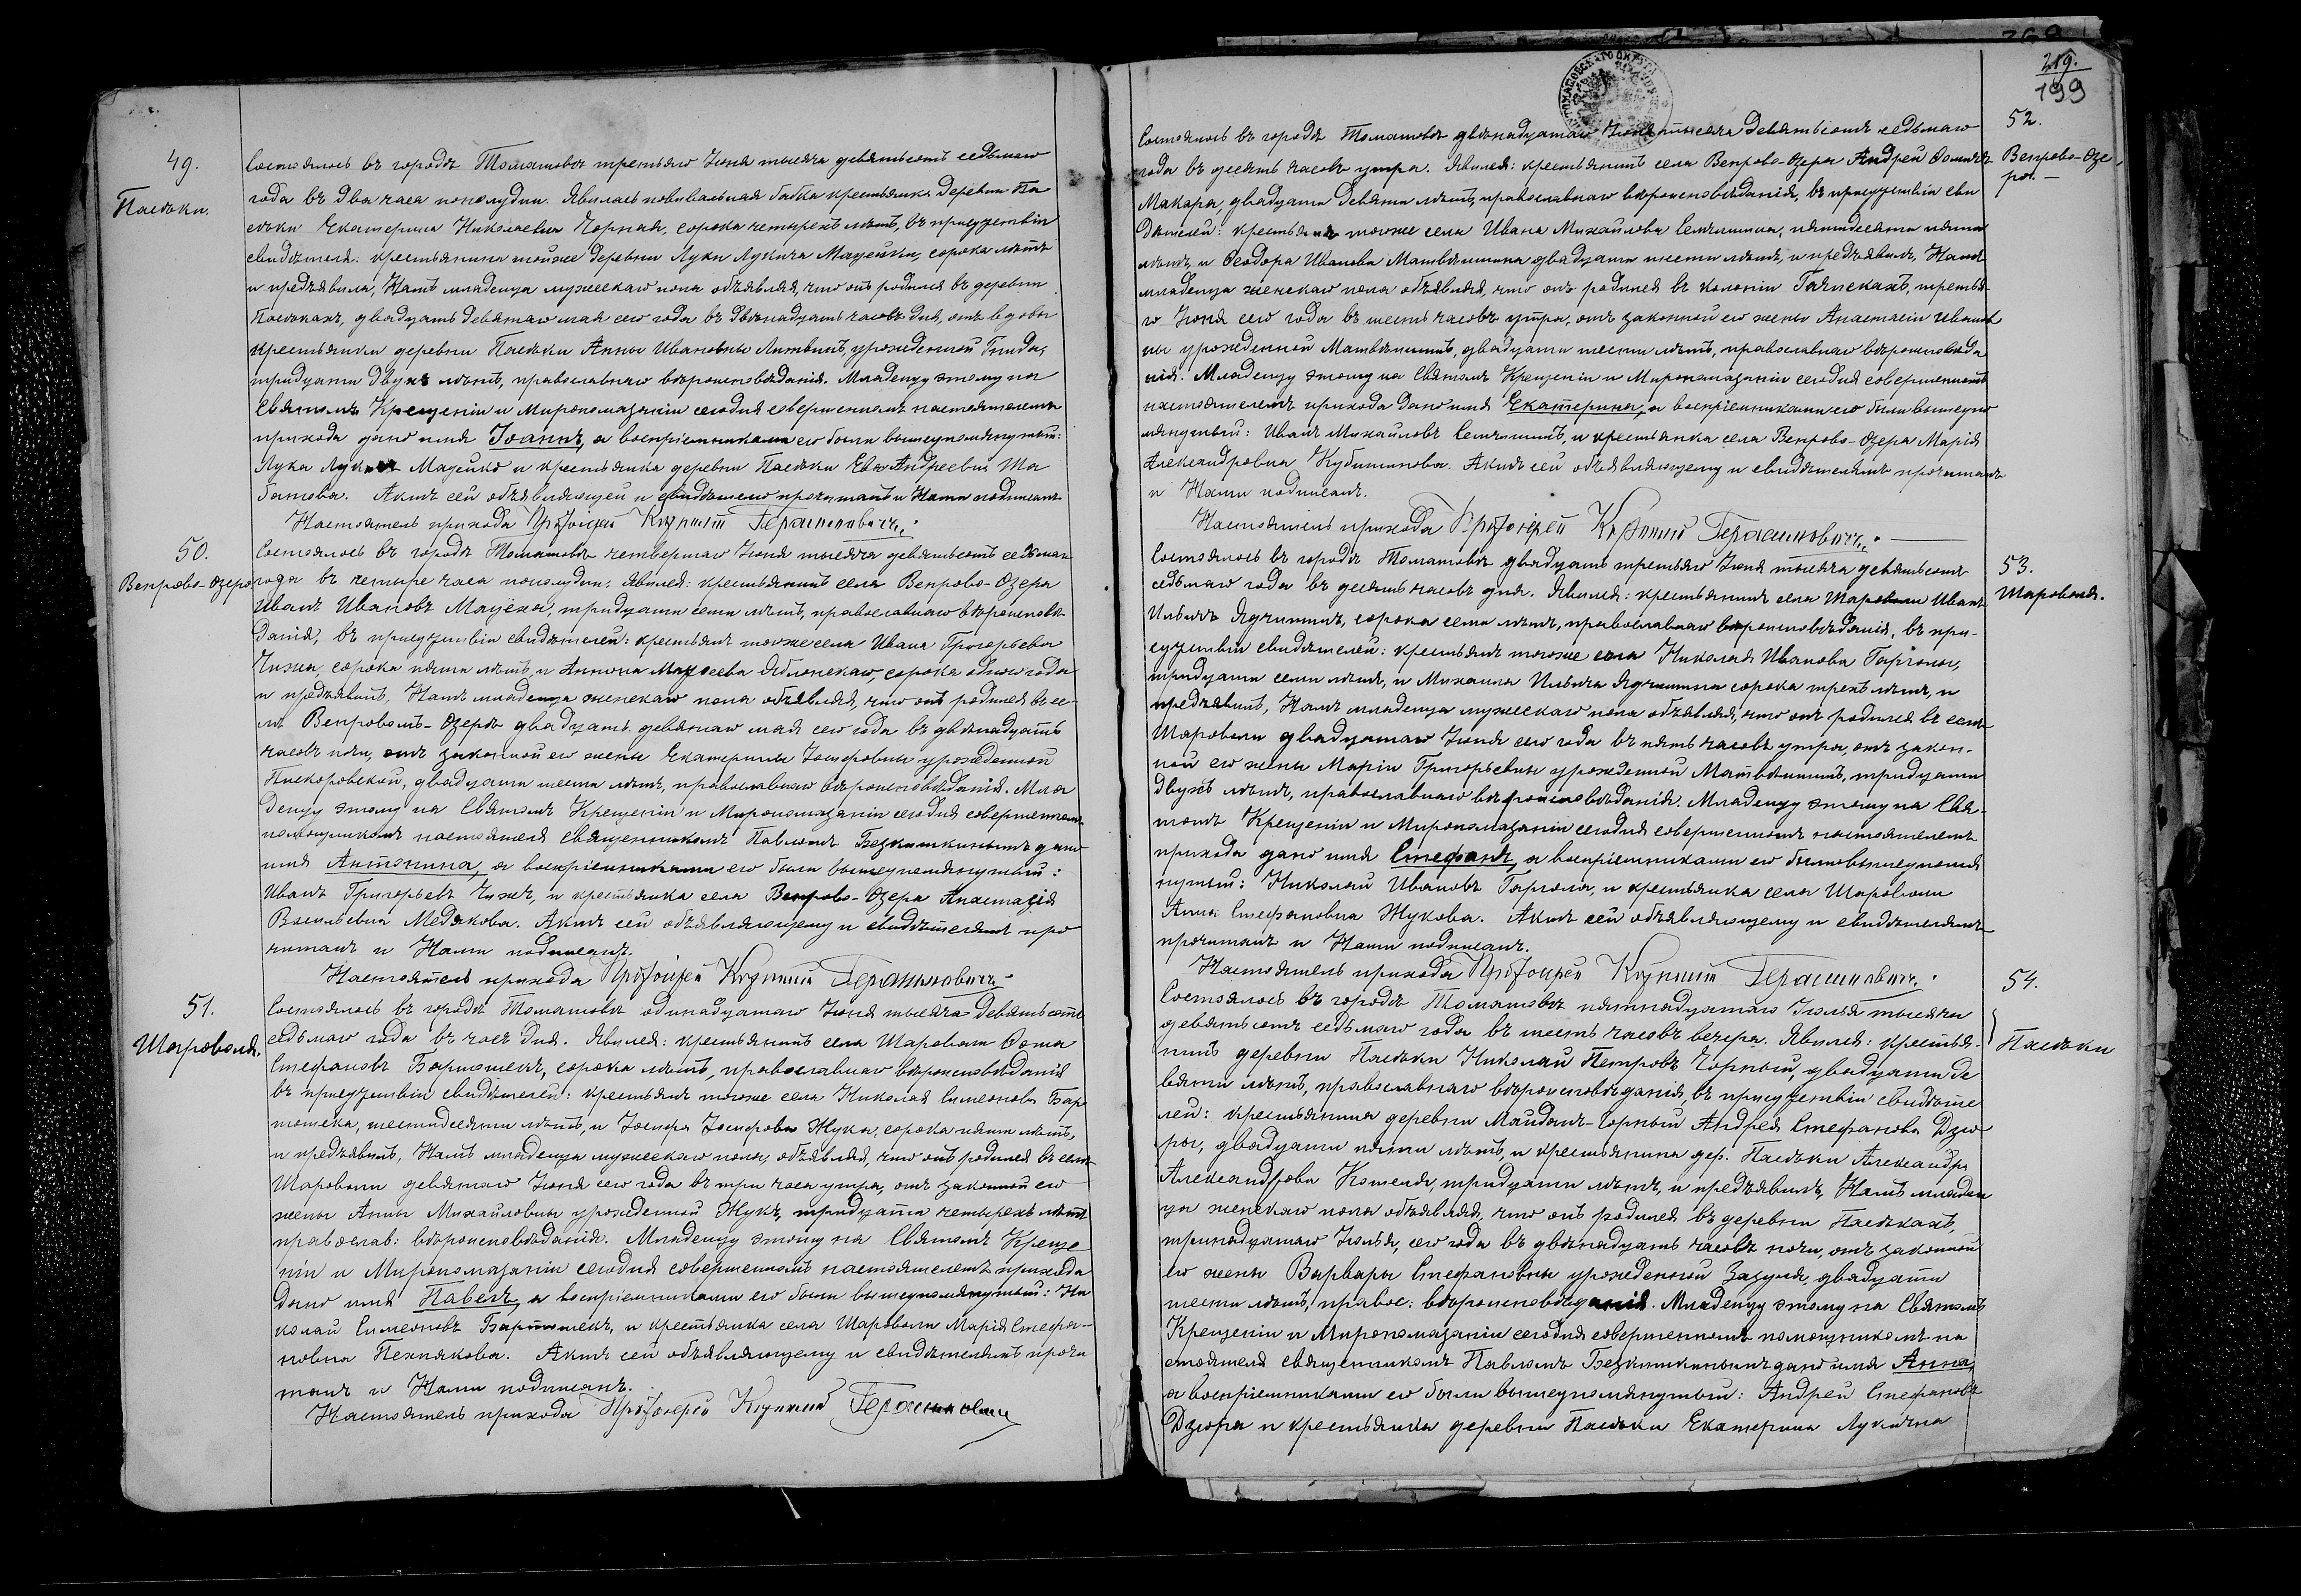 49.
Пасѣки.
Состоялось въ городѣ Томашовѣ третьяго Іюня тысяча девятьсотъ седьмаго
года въ два часа пополудни. Явилась повивальная бабка крестьянка деревни Па
сѣки Екатерина Николаевна Чорная, сорока четырехъ лѣтъ, въ присутствіи
свидѣтеля: крестьянина тойже деревни Луки Лукича Мацейки, сорока лѣтъ
и предъявила, Намъ младенца мужескаго пола объявляя, что онъ родился въ деревни
Пасѣкахъ, двадцать девятаго мая сего года въ двѣнадцать часовъ дня, отъ вдовы
крестьянки деревни Пасѣки Анны Ивановны Литвинъ, урожденной Гнида,
тридцати двухъ лѣтъ, православнаго вѣроисповѣданія. Младенцу этому на
Святомъ Крещеніи и Миропомазаніи сегодня совершенномъ настоятелемъ
прихода дано имя Іоаннъ, а воспріемниками его были вышеупомянутый:
Лука Лукичъ Мацейко и крестьянка деревни Пасѣки Ева Андреевна Ша
батова. Актъ сей объявляющей и свидѣтелю прочитанъ и Нами подписанъ
Настоятель прихода Протоіерей Корнилій Герасимовичъ.
50.
Вепрово-Озеро
Состоялось въ городѣ Томашовѣ четвертаго Іюня тысяча девятьсотъ седьмаго
года въ четыре часа пополудни. Явился: крестьянинъ села Вепрово-Озера
Иванъ Ивановъ Мацёха, тридцати семи лѣтъ, православнаго вѣроисповѣ
данія, въ присутствіи свидѣтелей: крестьянъ тогоже села Ивана Григорьева
Чижа, сорока пяти лѣтъ, и Антона Яблонскаго, сорока одного года
и предъявилъ, Намъ младенца женскаго пола объявляя, что онъ родился въ се-
лѣ Вепровомъ-Озерѣ двадцать девятаго мая сего года въ двѣнадцать
часовъ ночи, отъ законной его жены Екатерины Іосифовны урожденной
Пискоровской, двадцати шести лѣтъ, православнаго вѣроисповѣданія. Мла
денцу этому на Святомъ Крещеніи и Миропомазаніи сегодня совершенномъ
помощникомъ настоятеля священникомъ Павломъ Безкишкинымъ дано
имя Антонина, а воспріемниками его были вышеупомянутый:
Иванъ Григорьевъ Чижъ, и крестьянка села Вепрово-Озера Анастасія
Васильевна Медякова. Актъ сей объявляющему и свидѣтелямъ про
читанъ и Нами подписанъ.
Настоятель прихода Протоіерей Корнилій Герасимовичъ
51.
Шароволя.
Состоялось въ городѣ Томашовѣ одинадцатаго Іюня тысяча девятьсотъ
седьмаго года въ часъ дня. Явился: крестьянинъ села Шароволи Ѳома
Стефановъ Бартошекъ, сорока лѣтъ, православнаго вѣроисповѣданія
въ присутствіи свидѣтелей: крестьянъ тогоже села Николая Симеонова Бар
тошека, шестидесяти лѣтъ, и Іосифа Іосифова Жука, сорока пяти лѣтъ,
и предъявилъ, Намъ младенца мужескаго пола, объявляя, что онъ родился въ селѣ
Шароволи девятаго Іюня сего года въ три часа утра, отъ законной его
жены Анны Михайловны урожденной Жукъ, тридцати четырехъ лѣтъ
православ: вѣроисповѣданія. Младенцу этому на Святомъ Креще
ніи и Миропомазаніи сегодня совершенномъ настоятелемъ прихода
дано имя Павелъ, а воспріемниками его были вышеупомянутый: Ни
колай Симеоновъ Бартошекъ, и крестьянка села Шароволи Марія Стефа-
новна Пехнякова. Актъ сей объявляющему и свидѣтелямъ прочи
танъ и Нами подписанъ.
Настоятель прихода Протоіерей Корнилій Герасимовичъ
219.
199
52.
Вепрово-Озе
ро.
Состоялось въ городѣ Томашовѣ двѣнадцатаго Іюня тысяча девятьсотъ седьмаго
года въ десять часовъ утра. Явился: крестьянинъ села Вепрово-Озера Андрей Ѳомичъ
Макара, двадцати девяти лѣтъ, православнаго вѣроисповѣданія, въ присутствіи сви
дѣтелей: крестьянъ тогоже села Ивана Михайлова Семчишина, пятидесяти пяти
лѣтъ, и Ѳеодора Иванова Матвѣишина двадцати шести лѣтъ, и предъявилъ, Намъ
младенца женскаго пола объявляя, что онъ родился въ колоніи третья-
го Іюня сего года въ шесть часовъ утра, отъ законной его жены Анастасіи Иванов
ны урожденной Матвѣишинъ, двадцати шести лѣтъ, православнаго вѣроисповѣда
нія. Младенцу этому на Святомъ Крещеніи и Миропомазаніи сегодня совершенномъ
настоятелемъ прихода дано имя Екатерина, а воспріемниками его были вышеупо
мянутый: Иванъ Михайловъ Семчишинъ, и крестьянка села Вепрово-Озера Марія
Александровна Кубишинова. Актъ сей объявляющему и свидѣтелямъ прочитанъ
и Нами подписанъ.
Настоятель прихода Протоіерей Корнилій Герасимовичъ.
53.
Шароволя.
Состоялось въ городѣ Томашовѣ двадцать третьяго Іюня тысяча девятьсотъ
седьмаго года въ десять часовъ дня. Явился: крестьянинъ села Шароволи Иванъ
Ильичъ Ядчишинъ, сорока семи лѣтъ, православнаго вѣроисповѣданія, въ при-
сутствіи свидѣтелей: крестьянъ тогоже села Николая Иванова Гарголы,
тридцати семи лѣтъ, и Михаила Ильича Ядчишина сорока трехъ лѣтъ, и
предъявилъ, Намъ младенца мужескаго пола объявляя, что онъ родился въ селѣ
Шароволи двадцатаго Іюня сего года въ пять часовъ утра, отъ закон-
ной его жены Маріи Григорьевны урожденной Матвѣишинъ, тридцати
двухъ лѣтъ, православнаго вѣроисповѣданія. Младенцу этому на Свя-
томъ Крещеніи и Миропомазаніи сегодня совершенномъ настоятелемъ
прихода дано имя Стефанъ, а воспріемниками его были вышеупомя
нутый: Николай Ивановъ Гаргола, и крестьянка села Шароволи
Анна Стефановна Жукова. Актъ сей объявляющему и свидѣтелямъ
прочитанъ и Нами подписанъ.
Настоятель прихода Протоіерей Корнилій Герасимовичъ.
54.
Пасѣки
Состоялось въ городѣ Томашовѣ пятнадцатаго Іюлья тысяча
девятьсотъ седьмаго года въ шесть часовъ вечера. Явился: крестья-
нинъ деревни Пасѣки Николай Петровъ Чорный, двадцати де
вяти лѣтъ, православнаго вѣроисповѣданія, въ присутствіи свидѣте
лей: крестьянина деревни Майданъ-Горный Андрея Стефанова Дзю
ры, двадцати пяти лѣтъ, и крестьянина дер. Пасѣки Александра
Александрова Комеля, тридцати лѣтъ, и предъявилъ, Намъ младен
ца женскаго пола объявляя, что онъ родился въ деревни Пасѣкахъ,
тринадцатаго Іюлья, сего года въ двѣнадцать часовъ ночи, отъ законной
его жены Варвары Стефановны урожденной Зазуля, двадцати
шести лѣтъ, правос: вѣроисповѣданія. Младенцу этому на Святомъ
Крещеніи и Миропомазаніи сегодня совершенномъ помощникомъ на
стоятеля священникомъ Павломъ Безкишкинымъ дано имя Анна,
а воспріемниками его были вышеупомянутый: Андрей Стефановъ
Дзюра и крестьянка деревни Пасѣки Екатерина Лукична